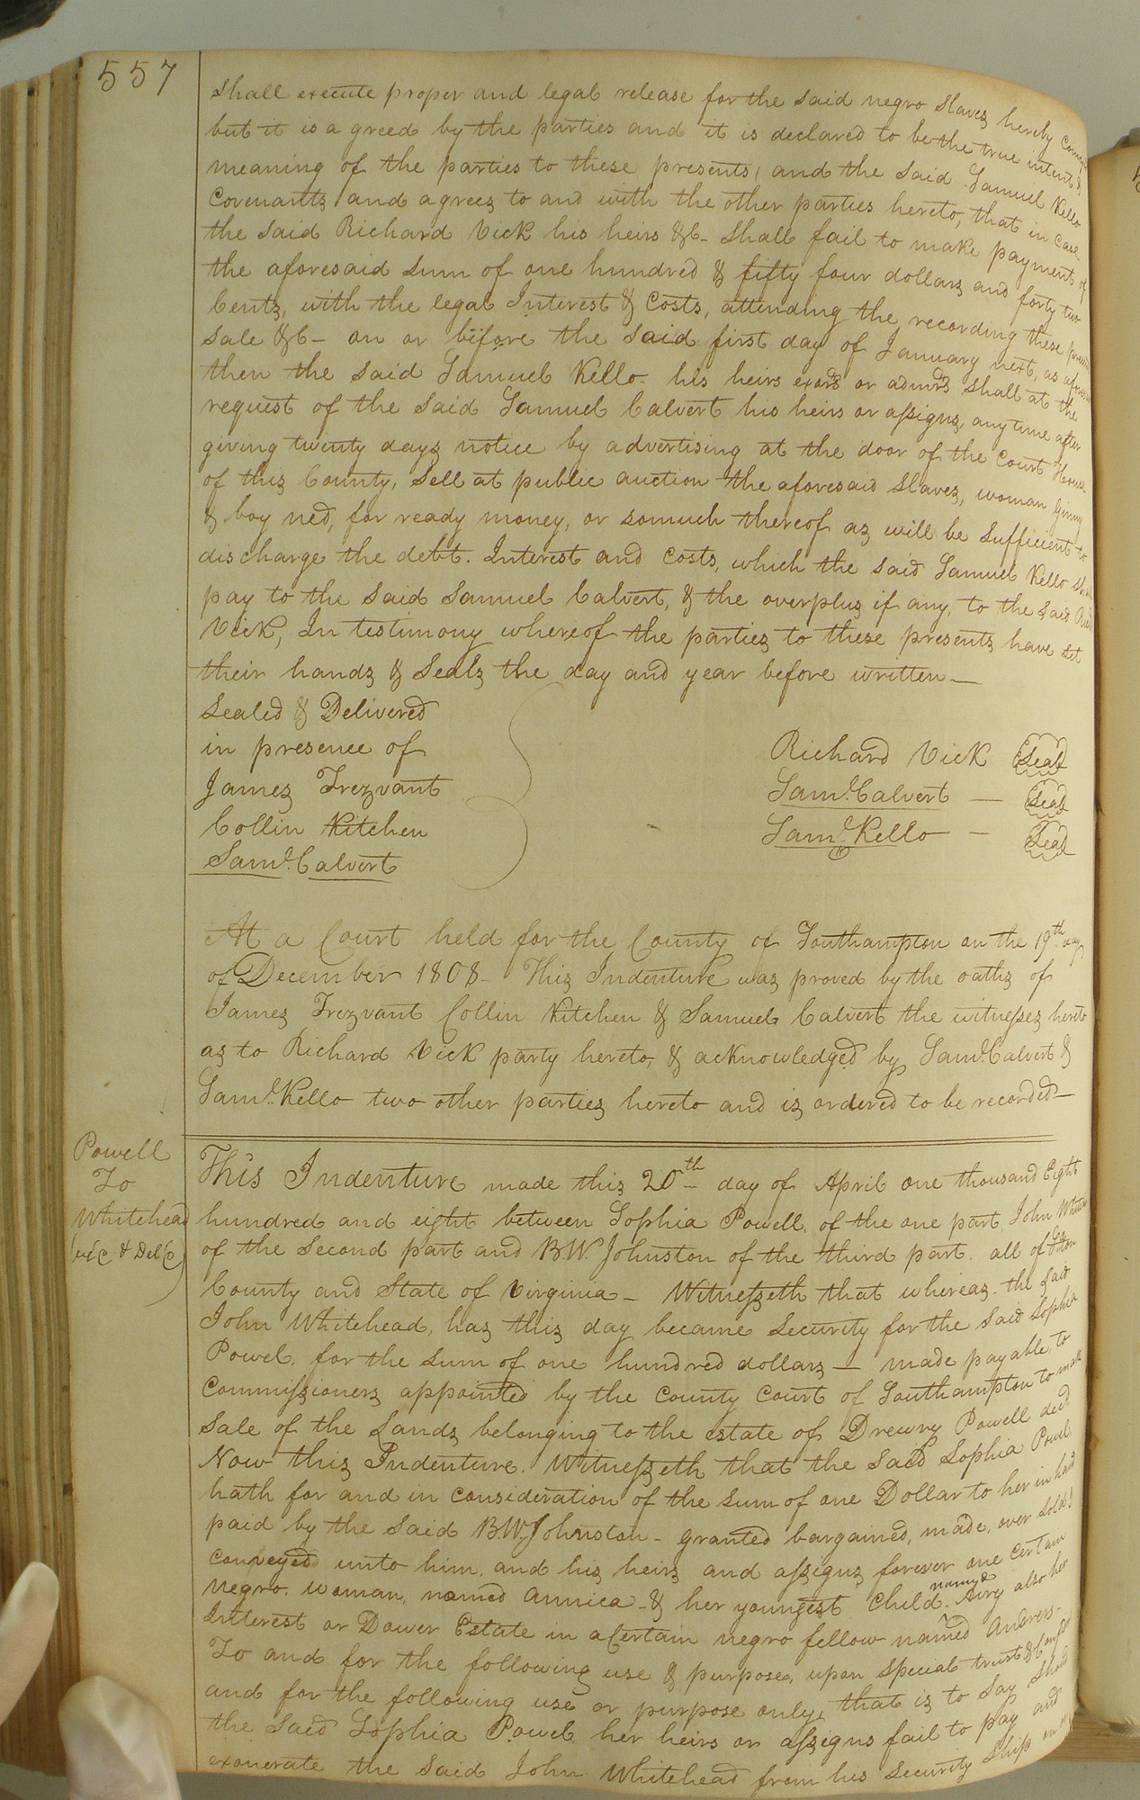 557
shall execute proper and legal release for the said negro Slaves hereby
but it is a greed by the parties and it is declared to be the true intent &
meaning of the parties to these presents, and the said Samuel Kello
Covenants and agrees to and with the other parties hereto, that in case
the said Richard Vick his heirs &c- shall fail to make payment of
the aforesaid sum of one hundred & fifty four dollars and forty two
Cents, with the legal Interest & Costs, attending the recording these
sale &c- on or before the said first day of January next, as
then the said Samuel Kello his heirs exors or admrs shall at the
request of the said Samuel Calvert his heirs or assigns, any time after
giving twenty days notice by advertising at the door of the Court House
of this County, Sell at public auction the aforesaid Slaves, woman
& boy ned, for ready money, or somuch thereof as will be sufficient to
discharge the debt. Interest and Costs, which the said Samuel Kello
pay to the said Samuel Calvert, & the overplus if any, to the said
Vick, In testimony whereof the parties to these presents have set
their hands & Seals the day and year before written-
Sealed & Delivered
in presence of
James Trezvant
Collin Kitchen
Saml. Calvert
Richard Vick Seal
Saml. Calvert - Seal
Saml. Kello - Seal
At a Court held for the County of Southampton on the 19th day
of December 1808- This Indenture was proved by the oaths of
James Trezvant Collin Kitchen & Samuel Calvert the witnesses hereto
as to Richard Vick party hereto, & acknowledged by Saml. Calvert &
Saml. Kello two other parties hereto and is ordered to be recorded-
Powell
To
Whitehead
&c & Del'd
This Indenture made this 20th day of April one thousand Eight
hundred and eight between Sophia Powell, of the one part, John
of the Second part and B.W. Johnston of the third part. all of
County and State of Virginia- Witnesseth that whereas the said
John Whitehead, has this day became Security for the said Sophia
Powel, for the sum of one hundred dollars- made payable, to
Commissioners appointed by the County Court of Southampton to make
sale of the Lands belonging to the estate of Drewry Powell decd
Now this Indenture. Witnesseth that the said Sophia Powel
hath for and in consideration of the sum of one Dollar to her in hand
paid by the said B.W. Johnston- granted bargained, made, over sold &
conveyed unto him, and his heirs and assigns forever one certain
negro. woman, named Annica - & her youngest Child. named Airy also her
Interest or Dower Estate in a Certain negro fellow named Andrew-
To and for the following use & purpose, upon special trust &
and for the following use or purpose only, that is to say should
the said Sophia Powel, her heirs or assigns fail to pay and
exonerate the said John Whitehead from his security Ship